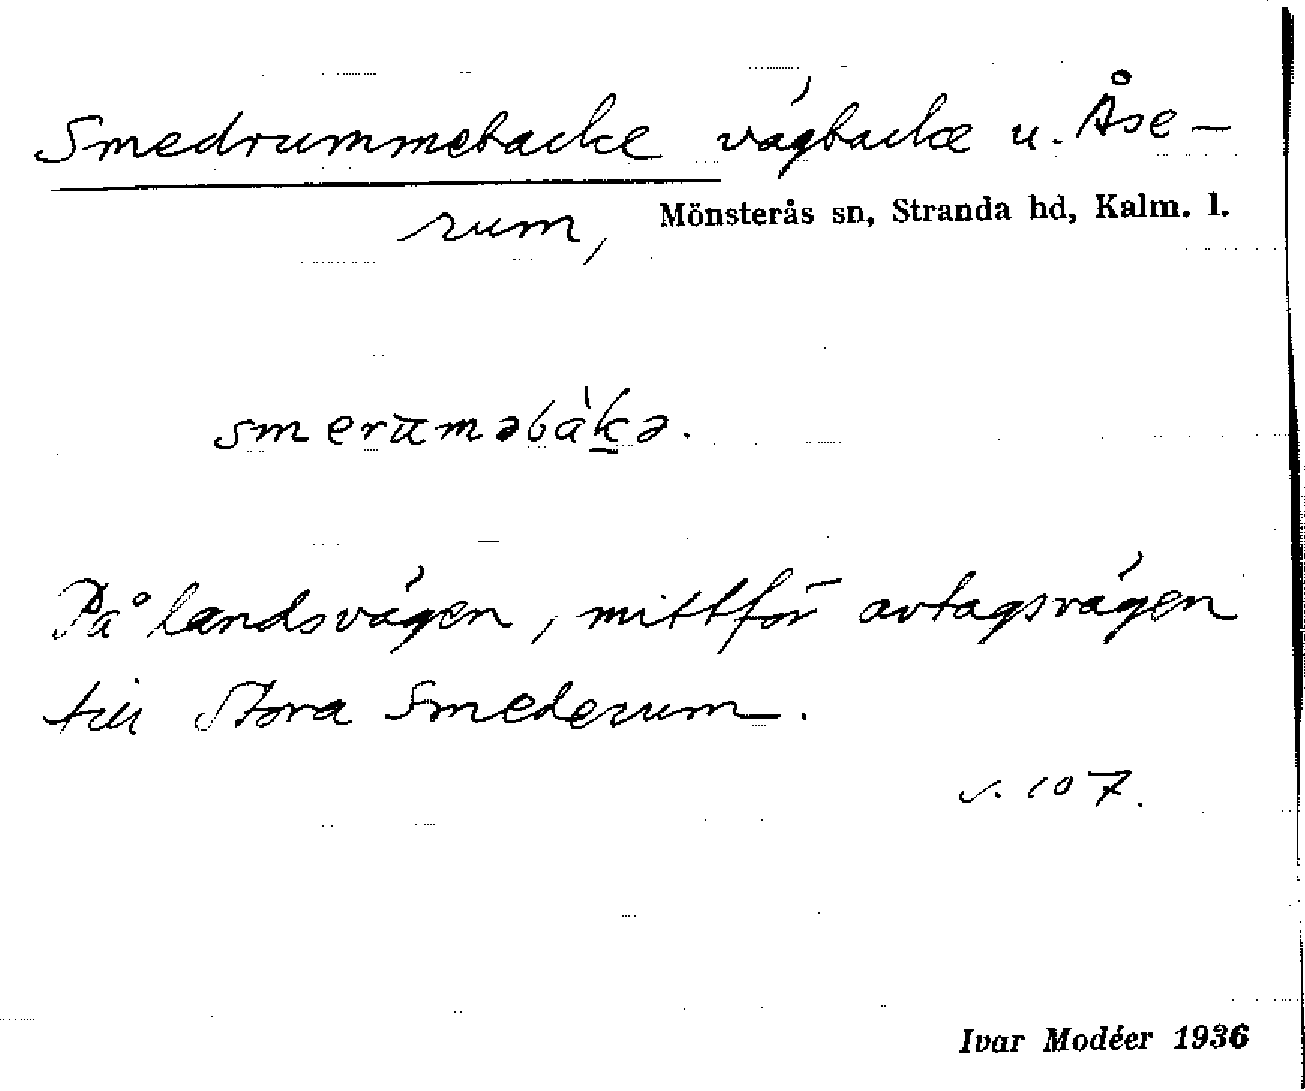 Smedrummebacke vägbacke u. Åse-
rum, Mönsterås sn, Stranda hd, Kalm. l.
smerūməbàkə.
På landsvägen, mittför avtagsvägen
till Stora Smederum.
s. 107.
Ivar Modéer 1936